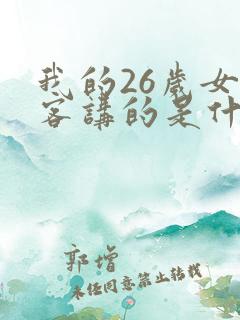 我的26歲女
客講的是什
郭增
未任同意禁止转载